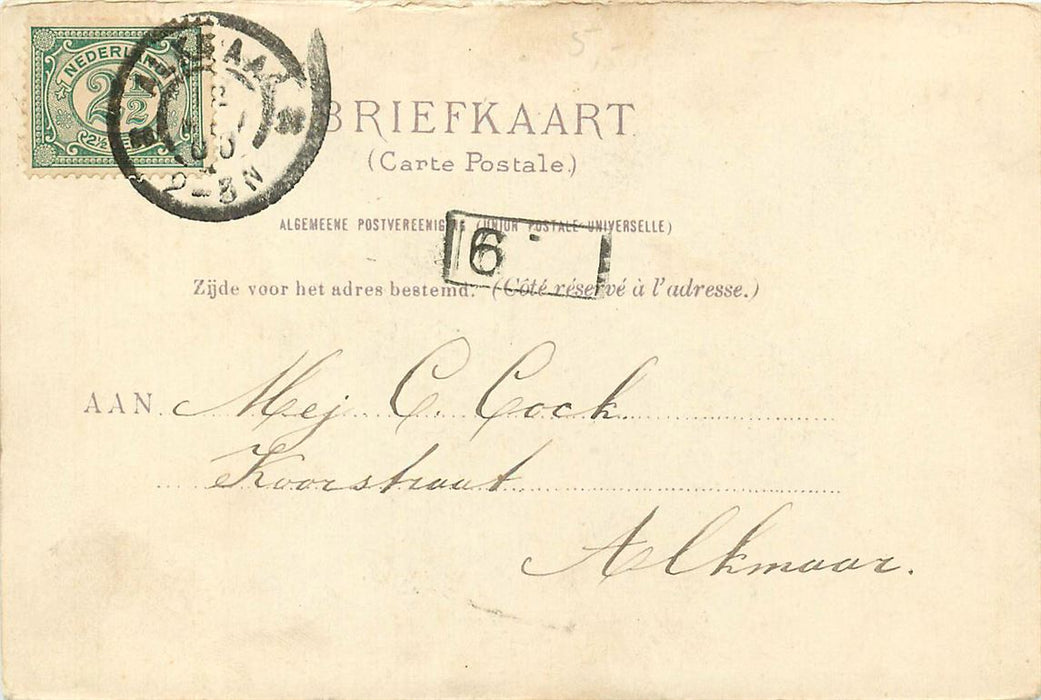 NEDERLAND
2½
2½
ALKMAAR
2-3N
5,-
BRIEFKAART
(Carte Postale.)
ALGEMEENE POSTVEREENIGING (UNION POSTALE UNIVERSELLE)
6
Zijde voor het adres bestemd. (Côté réservé à l'adresse.)
AAN Mej C. Cock.
Koorstraat
Alkmaar.